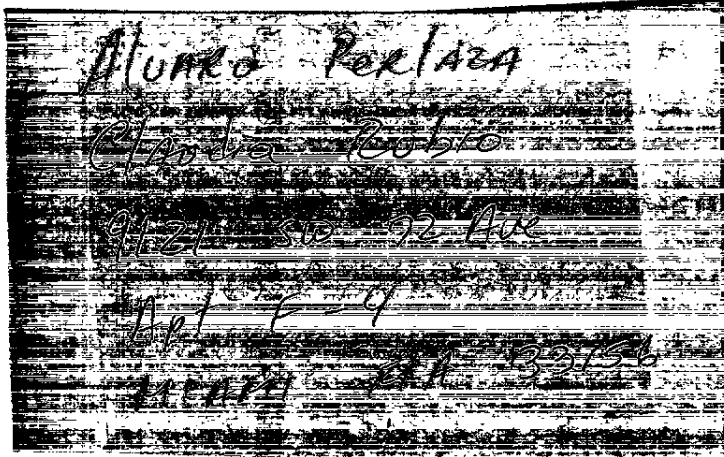 Alvaro Perlaza
Claudia Rubio
9121 SW 72 Ave
Apt F-9
MIAMI FLA 33156